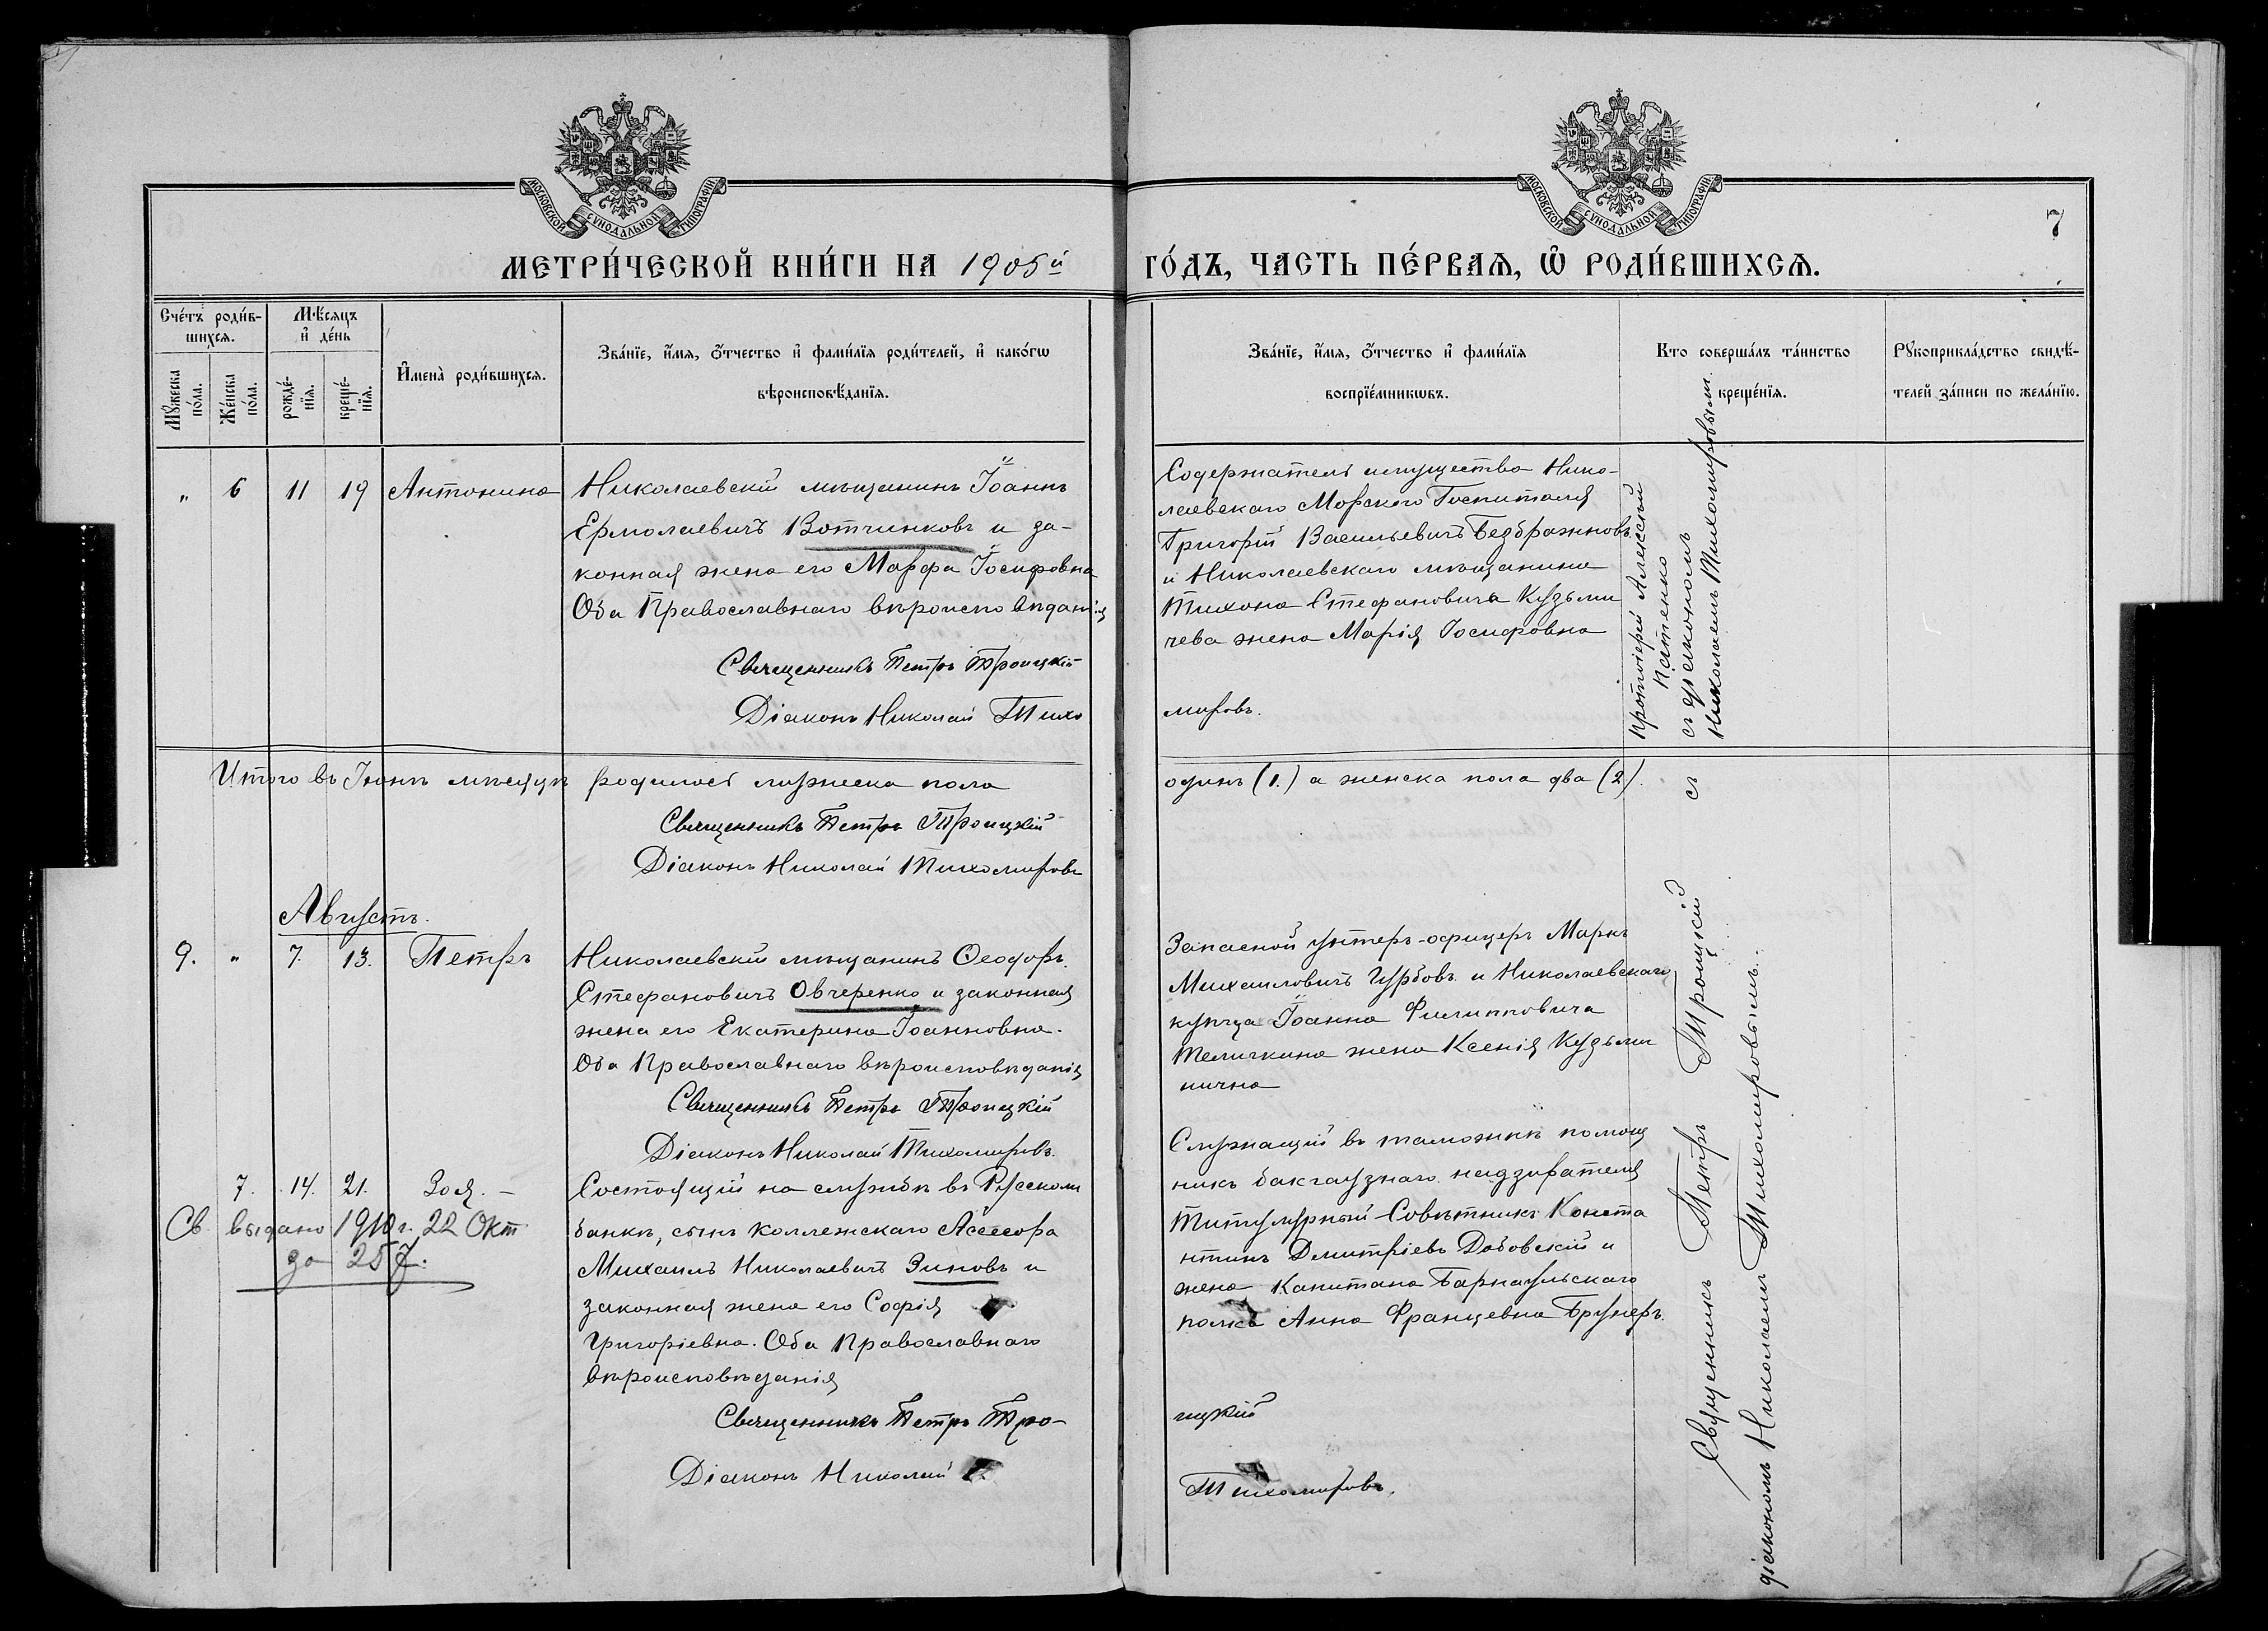 МОСКОВСКОЙ СѴНОДАЛЬНОЙ ТИПОГРАФІИ
МОСКОВСКОЙ СѴНОДАЛЬНОЙ ТИПОГРАФІИ
7
МЕТРИ́ЧЕСКОЙ КНИ́ГИ НА 1905й
ГО́ДЪ, ЧАСТЬ ПЕ́РВАѦ, Ѡ РОДИ́ВШИХСѦ.
Сче́тъ роди́в-
шихсѧ.
Мꙋ́жеска по́ла.
Же́нска по́ла.
Мѣ́сяцъ
и҆ де́нь
рожде́-
нїѧ.
креще́-
нїѧ.
И҆мена̀ роди́вшихсѧ.
Зва́нїе, и҆́мѧ, ѻ҆́тчество и҆ фами́лїѧ роди́телей, и҆ како́гѡ
вѣроисповѣ́данїѧ.
Зва́нїе, и҆́мѧ, ѻ҆́тчество и҆ фами́лїѧ
воспрїе́мникѡвъ.
Кто соверша́лъ та́инство
креще́нїѧ.
Рꙋкоприкла́дство свидѣ́-
телей за́писи по жела́нїю.
" 6 11 19 Антонина
Николаевскій мѣщанинъ Іоаннъ
Ермолаевичъ Вотчинковъ и за-
конная жена его Марфа Іосифовна
Оба Православнаго вѣроисповѣданія
Священникъ Петръ Троицкій
Діаконъ Николай Тихо
Содержатель имущества Нико-
лаевскаго Морского Госпиталя
Григорій Васильевичъ Безбражновъ
и Николаевскаго мѣщанина
Тихона Стефановича Кузьми
чева жена Марія Іосифовна
мировъ.
Протоіерей Алексѣй
Пятенко
съ діакономъ
Николаемъ Тихомировымъ.
Итого въ Іюлѣ мѣсяцѣ родилось мужеска пола
одинъ (1.) а женска пола два (2).
Священникъ Петръ Троицкій
Діаконъ Николай Тихомировъ
Августъ.
9. " 7. 13. Петръ
Николаевскій мѣщанинъ Ѳеодоръ
Стефановичъ Овчеренко и законная
жена его Екатерина Іоанновна.
Оба Православнаго вѣроисповѣданія
Священникъ Петръ Троицкій
Діаконъ Николай Тихомировъ.
Запасной унтеръ-офицеръ Маркъ
Михаиловичъ Гурбовъ и Николаевскаго
купца Іоанна Филипповича
Теличкина жена Ксенія Кузьми
нична
7. 14. 21. Зоя. –
Св. выдано 1910 г. 22 Окт
за 257.
Состоящій на службѣ въ Русскомъ
банкѣ, сынъ коллежскаго Ассесора
Михаилъ Николаевичъ Зиновъ и
законная жена его Софія
Григоріевна. Оба Православнаго
вѣроисповѣданія
Священникъ Петръ Тро-
Діаконъ Николай
Служащій въ таможнѣ помощ
никъ бакгаузнаго надзирателя
Титулярный Совѣтникъ Конста
нтинъ Дмитріевъ Добовскій и
жена Капитана Барнаульскаго
полка Анна Францевна Брунеръ.
ицкій
Тихомировъ.
Священникъ Петръ Троицкій съ
діакономъ Николаемъ Тихомировымъ.